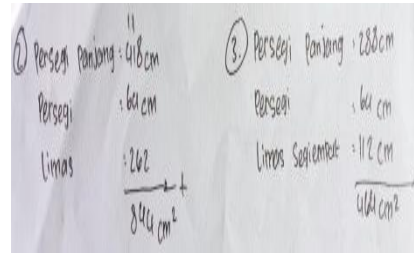 11
2 Persegi Panjang : 418 cm
Persegi : 64 cm
Limas : 262
+
844 cm²
3. Persegi Panjang : 288 cm
Persegi : 64 cm
Limas Segiempat : 112 cm
464 cm²